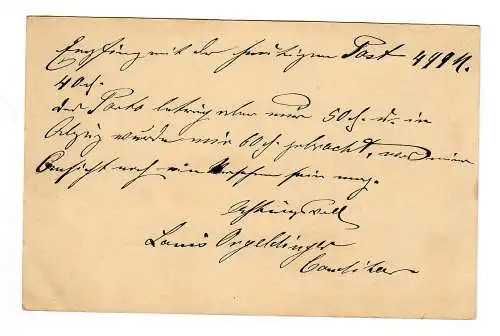 Empfing mit der heutigen Post 499 M.
40 ch.
das Porto betrug aber nur 50 ch. u. in
Abzug wurde mir 60 ch. gebracht, was meiner
Ansicht nach ein Versehen sein mag.
Achtungsvoll
Louis
Conditor